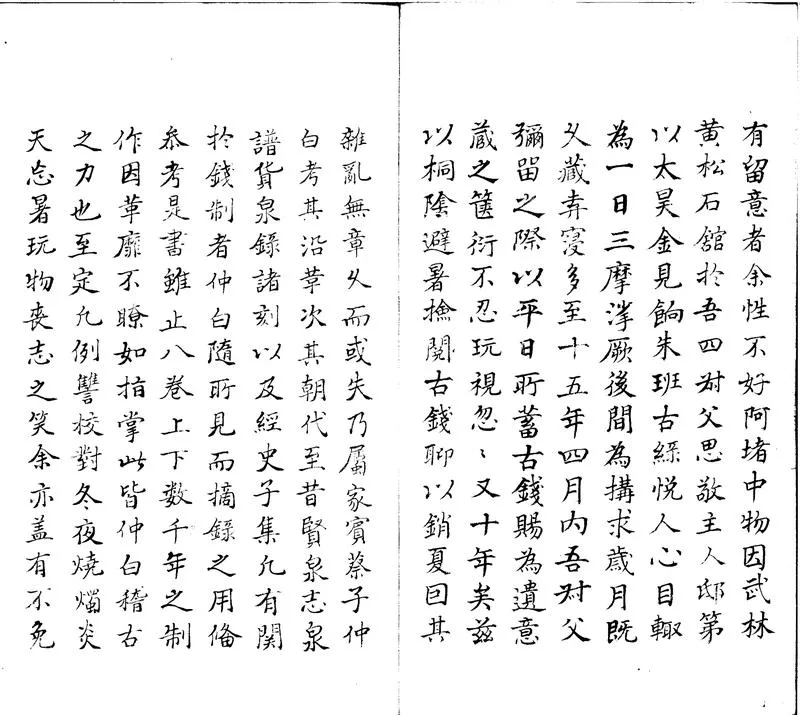 有留意者余性不好阿堵中物因武林
黄松石舘於吾四尗父思敬主人邸第
以太昊金見餉朱班古綠悦人心目輙
為一日三摩挲厥後間為搆求歲月既
久藏弆寖多至十五年四月內吾尗父
彌留之際以平日所蓄古錢賜為遺意
蔵之篋衍不忍玩視忽〻又十年矣兹
以桐陰避暑撿閱古錢聊以銷夏回其
雜亂無章久而或失乃屬家賓蔡子仲
白考其沿革次其朝代至昔賢泉志泉
譜貨泉錄諸刻以及經史子集凢有関
扵錢制者仲白隨所見而摘錄之用俻
叅考是書雖止八卷上下数千年之制
作因革靡不瞭如指掌此皆仲白稽古
之力也至定凢例讐校對冬夜燒燭炎
天忘暑玩物喪志之笑余亦盖有不免